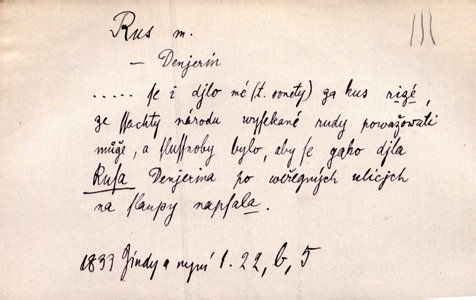 III
Rus m.
— Denjerin
..... se i djlo mé (t. sonety) za kus rizé,
ze ssachty národu wysekané rudy powažowati
může, a slussnoby bylo, aby se gaho djla
Rusa Denjerina po weřegných ulicjch
na slaupy napsala.
1833 Jindy a nynj 1. 22, b, 5